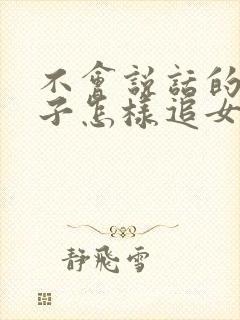 不會說話的
子怎樣追女
静飛雪